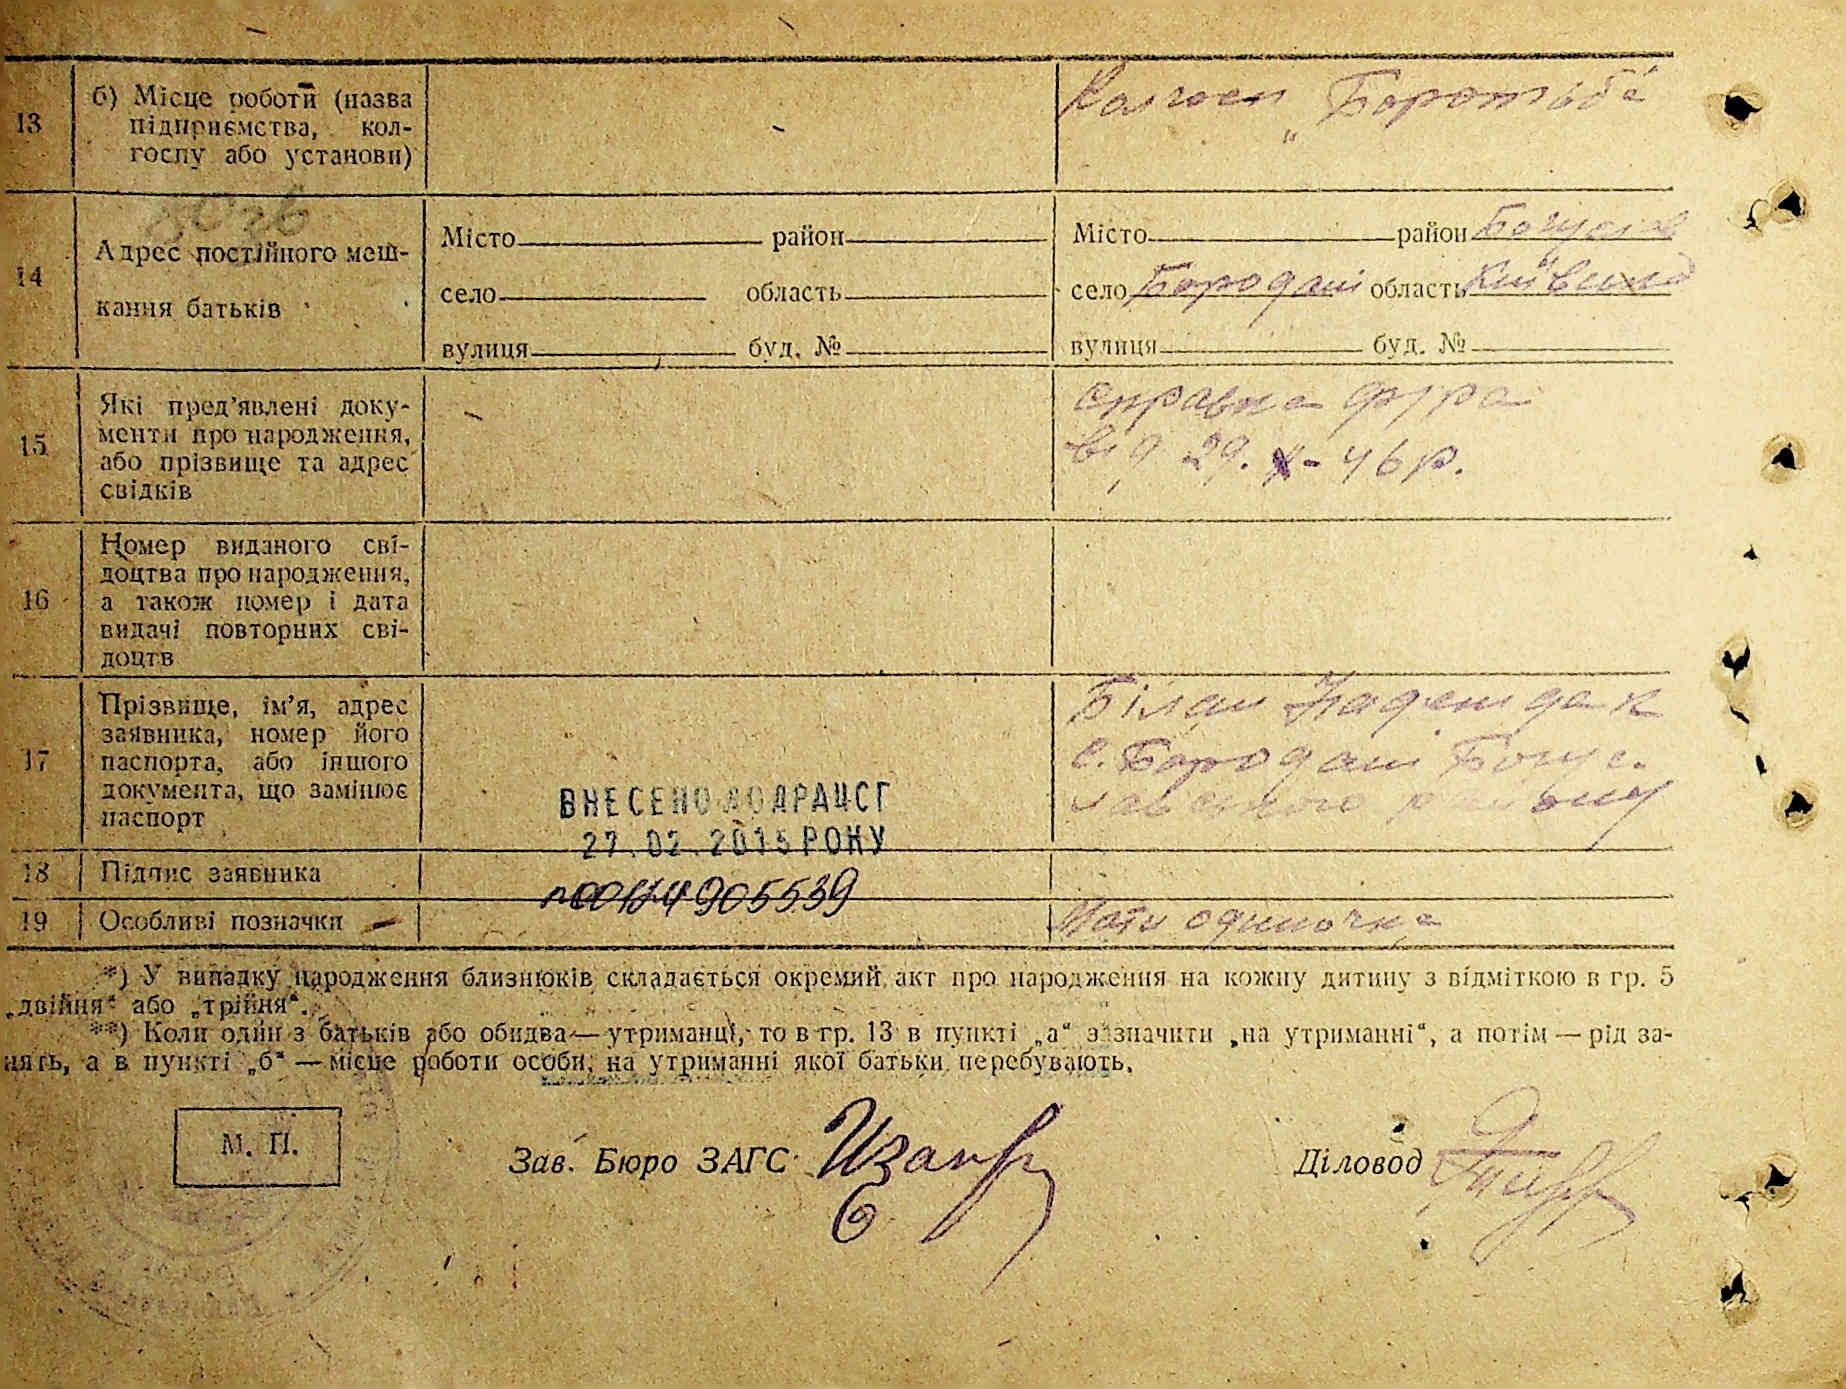 13 б) Місце роботи (назва підприємства, колгоспу або установи)
Колгосп „Боротьба"
14 Адрес постійного мешкання батьків
Місто район
село область
вулиця буд. №
Місто район Богуслав
село Бородані область Київська
вулиця буд. №
15 Які пред'явлені документи про народження, або прізвище та адрес свідків
справка
від 29. X - 46 р.
16 Номер виданого свідоцтва про народження, а також номер і дата видачі повторних свідоцтв
17 Прізвище, ім'я, адрес заявника, номер його паспорта, або іншого документа, що заміщює паспорт
Білан Надежда К
с. Бородані Богус-
лавського району
ВНЕСЕНО ДО ДРАЦСГ
27.02.2015 РОКУ
18 Підпис заявника
905539
19 Особливі позначки
Мати одиночка
*) У випадку народження близнюків складається окремий акт про народження на кожну дитину з відміткою в гр. 5
„двійня" або „трійня".
**) Коли один з батьків або обидва — утриманці, то в гр. 13 в пункті „а" зазначити „на утриманні", а потім — рід за-
нять, а в пункті „б" — місце роботи особи, на утриманні якої батьки перебувають.
М. П.
Зав. Бюро ЗАГС
Діловод